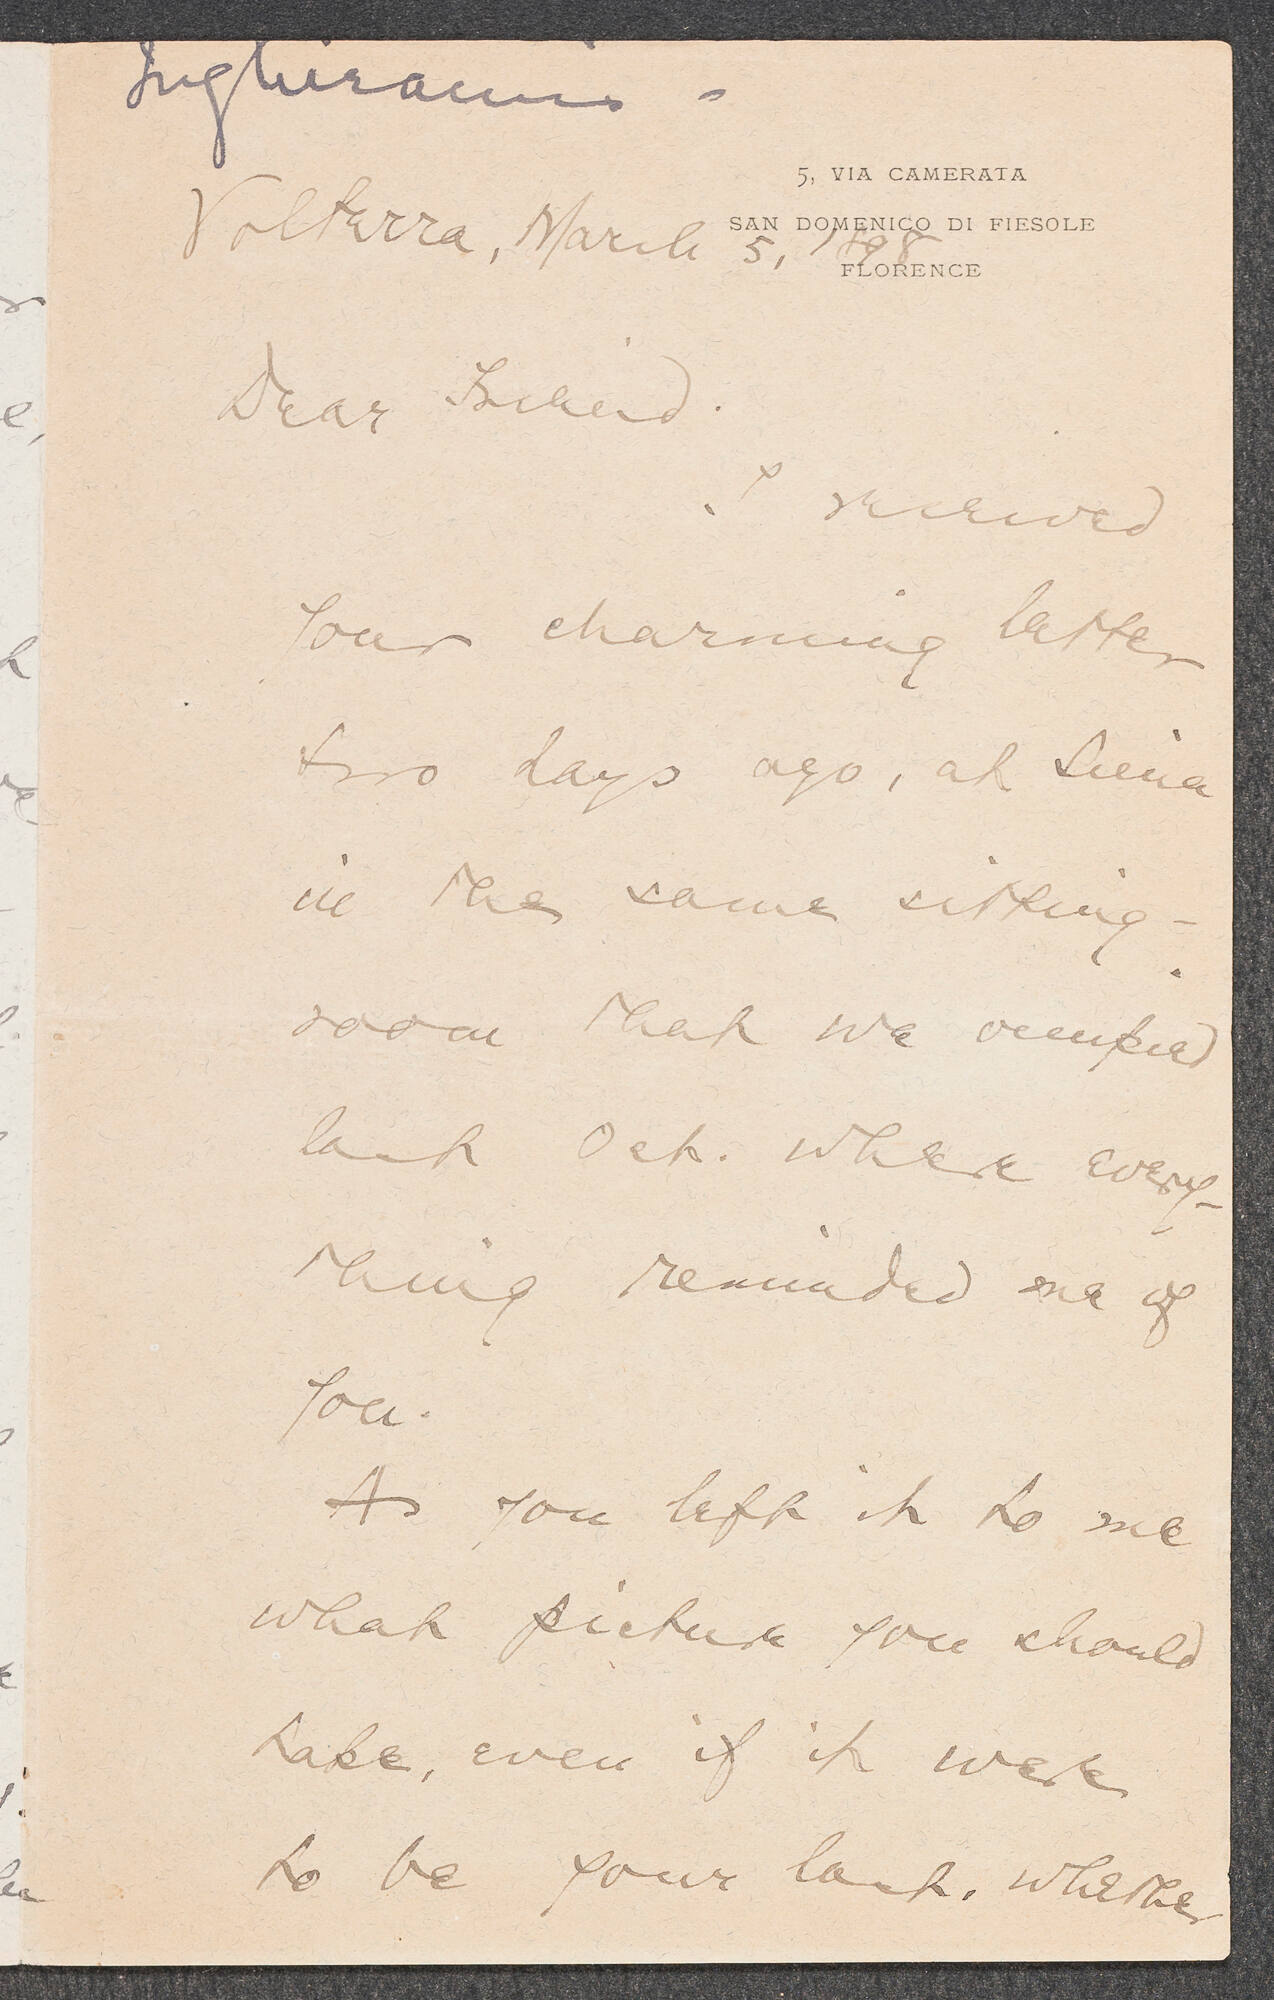 Inghirami -
5, VIA CAMERATA
SAN DOMENICO DI FIESOLE
FLORENCE
Volterra, March 5, 1898
Dear Friend.
I received
your charming letter
two days ago, at Siena
in the same sitting-
room that we occupied
last Oct. where every-
thing reminded me of
you.
As you left it to me
what picture you should
take, even if it were
to be your last, whether